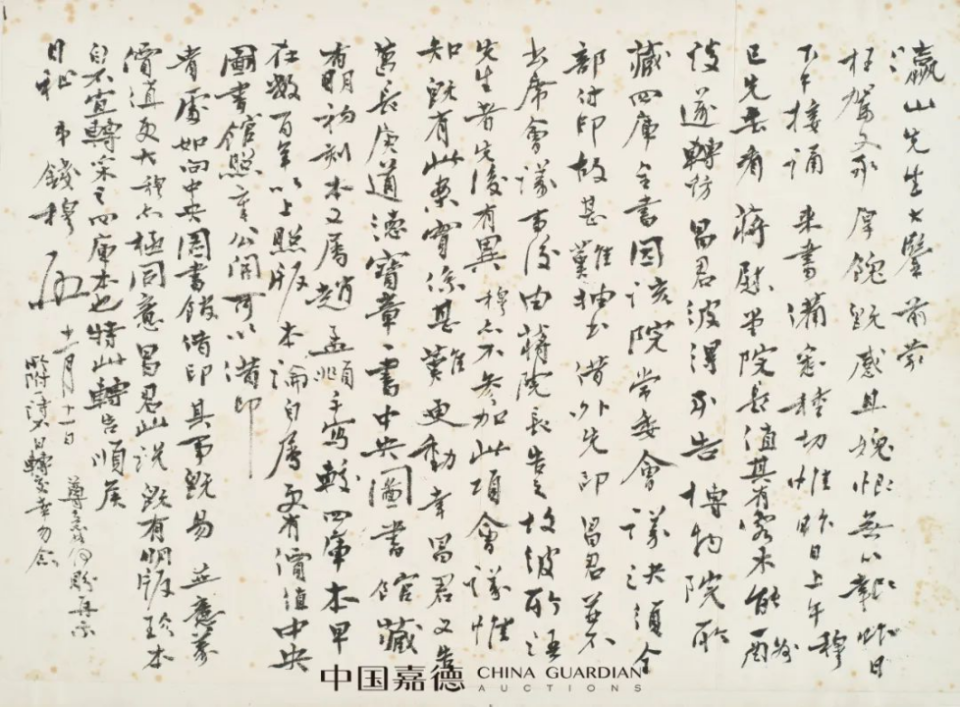 瀛山先生大鑒前蒙
枉駕又承厚餽既感且媿恨無以報昨日
下午接誦來書備悉種切惟昨日上午穆
已先去看蔣慰堂院長值其有客未能酌
談遂轉訪昌君彼得承告博物院所
藏四庫全書因該院常委會議決須全
部付印故甚難抽出借外先印昌君並不
出席會議百後由蔣院長告之故彼所語
先生者先後有異穆亦不參加此項會議惟
知既有此案實係甚難更動幸昌君又告
葛長庚道德寶章一書中央圖書館藏
有明初刻本又屬趙孟頫手寫較四庫本早
在數百年以上照版本論自屬更有價值中央
圖書館照章公開可以借印
者處如向中央圖書館借印其事既易並應募
價道更大穆亦極同意昌君此說既有明版珍本
自不宜轉求之四庫本也特此轉告順矦
日祉 弟錢穆 十一月十一日
尊意何盼再示
附一請不日轉交幸勿念
中国嘉德 CHINA GUARDIAN
AUCTIONS